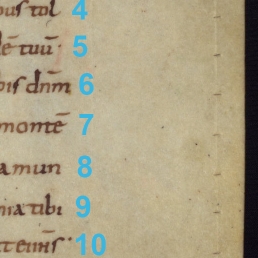 bus tol 4
lē tuū· 5
bis dn̄m 6
montē 7
amun 8
nia tibi 9
t eius· 10